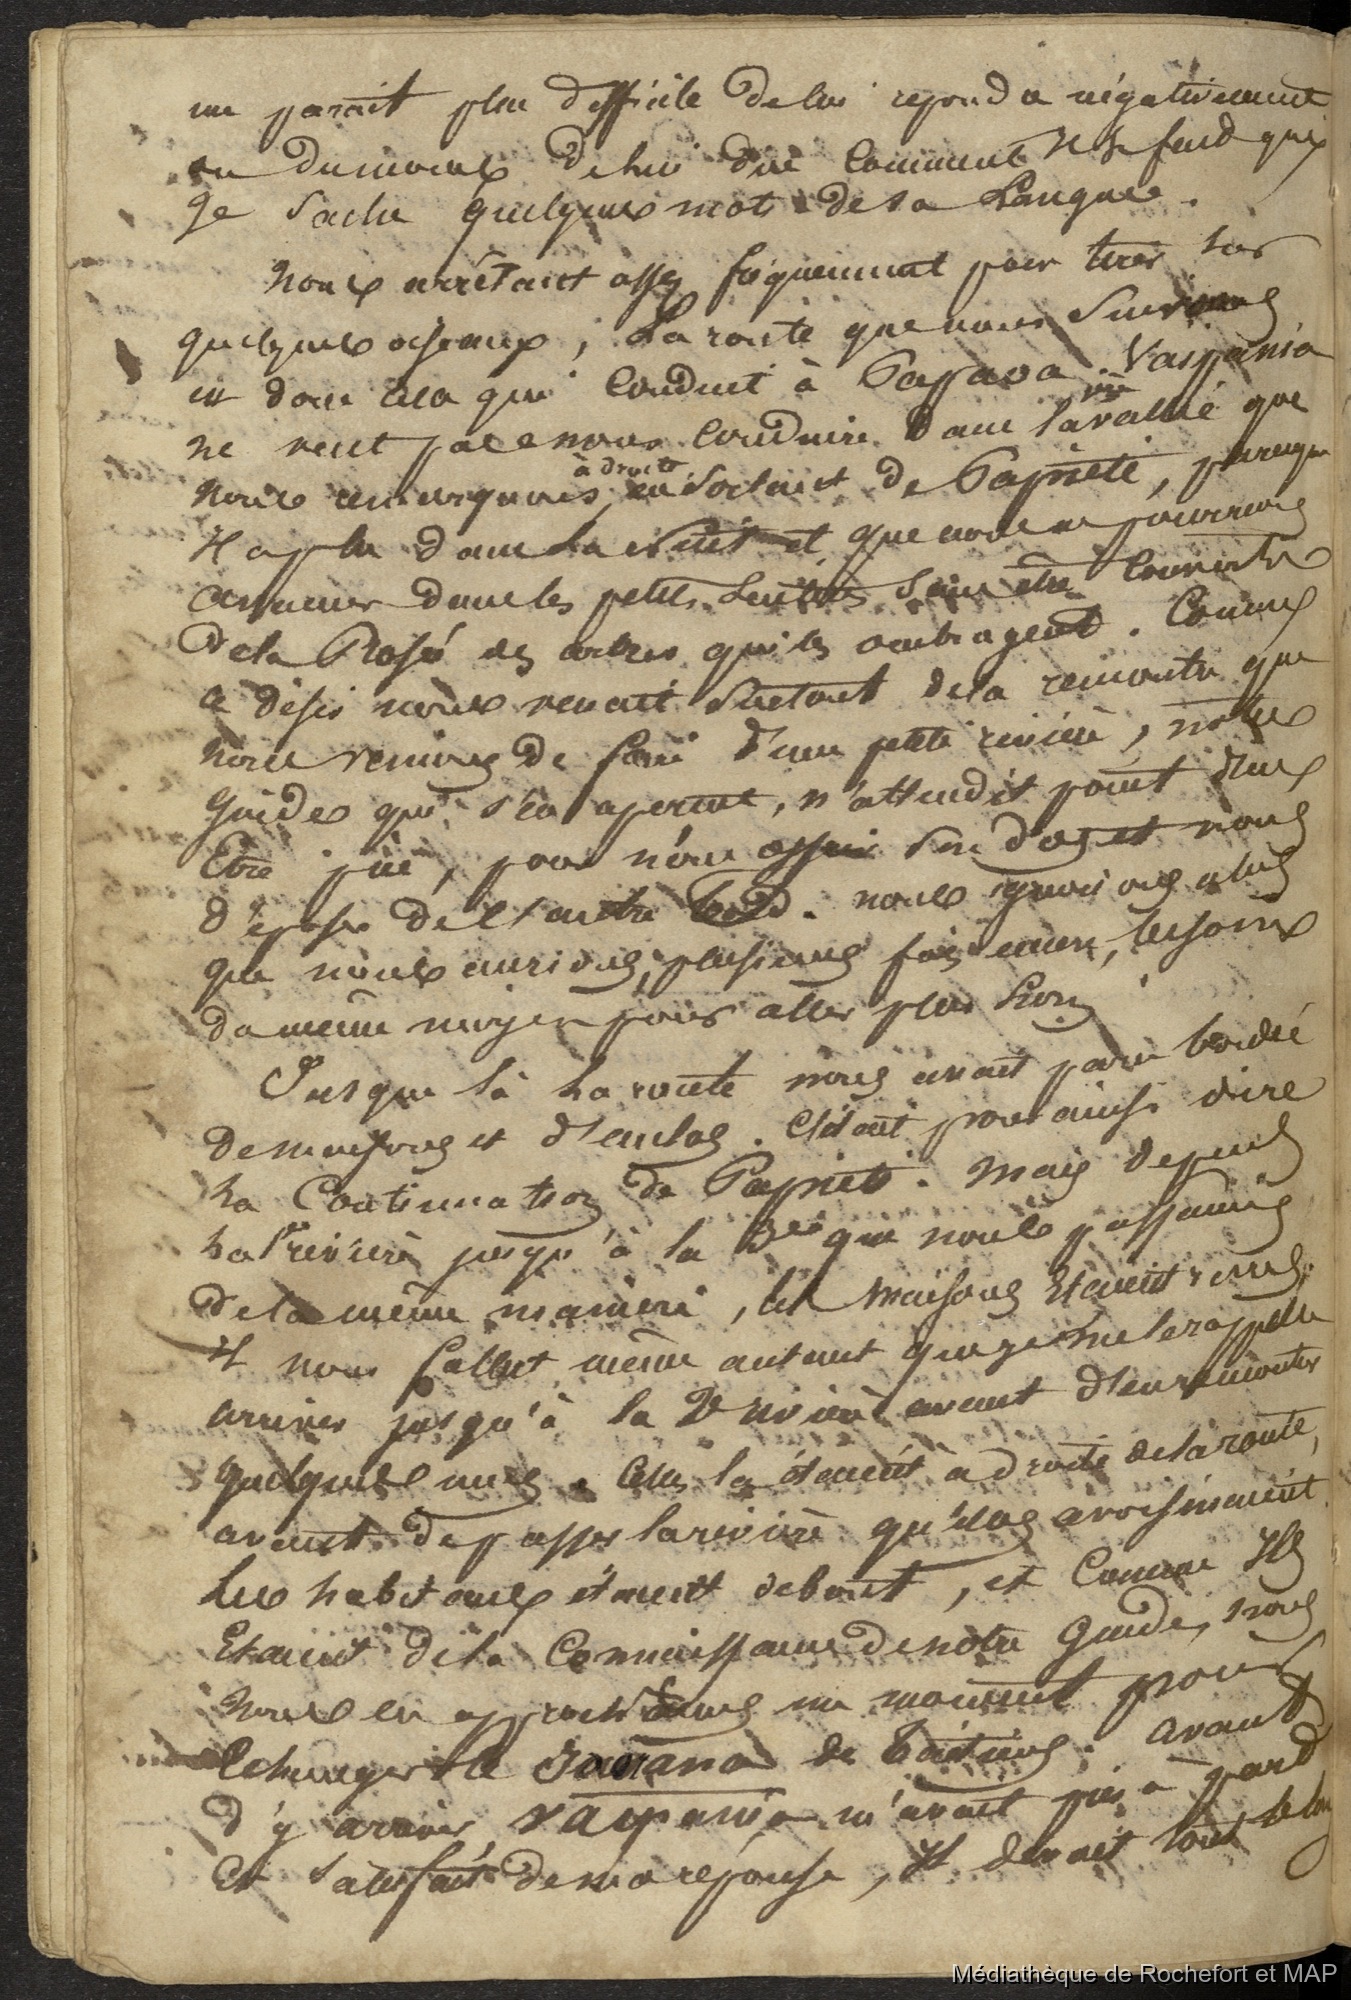 me parait plus difficile de lui repondre négativement
ou du moins de lui dire Comment Il se faid que
Je Sache quelques mots de sa Langue.
Nous arrêtant assez fréquemment pour tirer sur
quelques oiseaux, La route que nous Suivons
est donc cela qui Conduit à Papaoa. Vaspania
ne veut pas nous Conduire dans la vallée que
nous remarquons à droite en sortant de Papieté, parceque
Il a plu dans La Nuit et que nous ne pourrions
cheminer dans les petits Sentiers Sans être Couverts
de la Rosée des arbres qui les ombragent. Comme
ce désir nous venait Surtout de la rencontre que
nous venions de faire d'une petite rivière, notre
Guide qui s'en aperçut, n'attendit point d'en
Etre prié, pour nous offrir Son dos et nous
déposer de l'autre bord. nous ignorions alors
que nous aurions, plusieurs fois encore, besoin
du même moyen pour aller plus Loin.
Jusque là La route nous avait paru bordée
de maisons et d'enclos. C'était pour ainsi dire
La Continuation de Papieté. Mais depuis
La 1re rivière jusqu'à la 2de que nous passâmes
de la même manière, les Maisons Etaient rares,
Il nous fallut même autant que je me le rappelle
arriver jusqu'à la 2e rivière avant d'en rencontrer
quelques unes. Celles là étaient à droite de la route,
avant de passer la rivière qu'elles avoisinaient.
Les habitans étaient debout, et Comme Ils
Etaient de la Connaissance de notre Guide, nous
nous en approchâmes un moment pour
Echanger le Iaorana de Taïtiens. Avant
d'y arriver, Vaspania m'avait pris à part
Et Satisfait de ma réponse, Il donnait tout